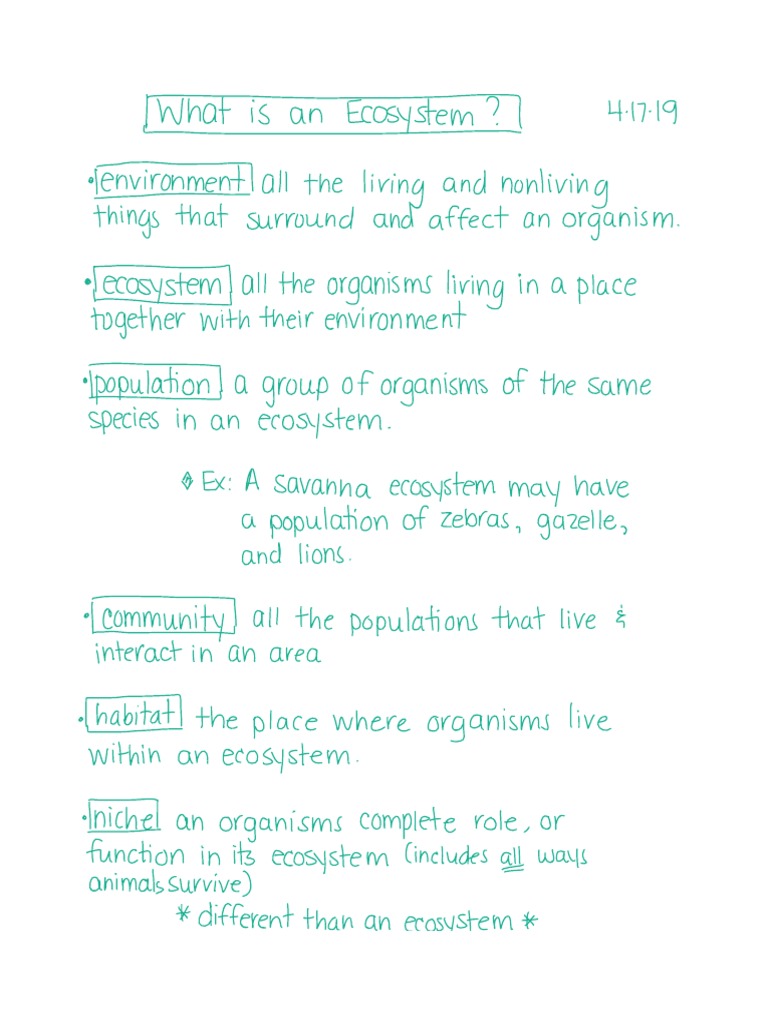 What is an Ecosystem? 4.17.19
• environment all the living and nonliving
things that surround and affect an organism.
• ecosystem all the organisms living in a place
together with their environment
• population a group of organisms of the same
species in an ecosystem.
Ex: A savanna ecosystem may have
a population of zebras, gazelle,
and lions.
• community all the populations that live &
interact in an area
• habitat the place where organisms live
within an ecosystem.
• niche an organisms complete role, or
function in its ecosystem (includes all ways
animals survive)
* different than an ecosystem *